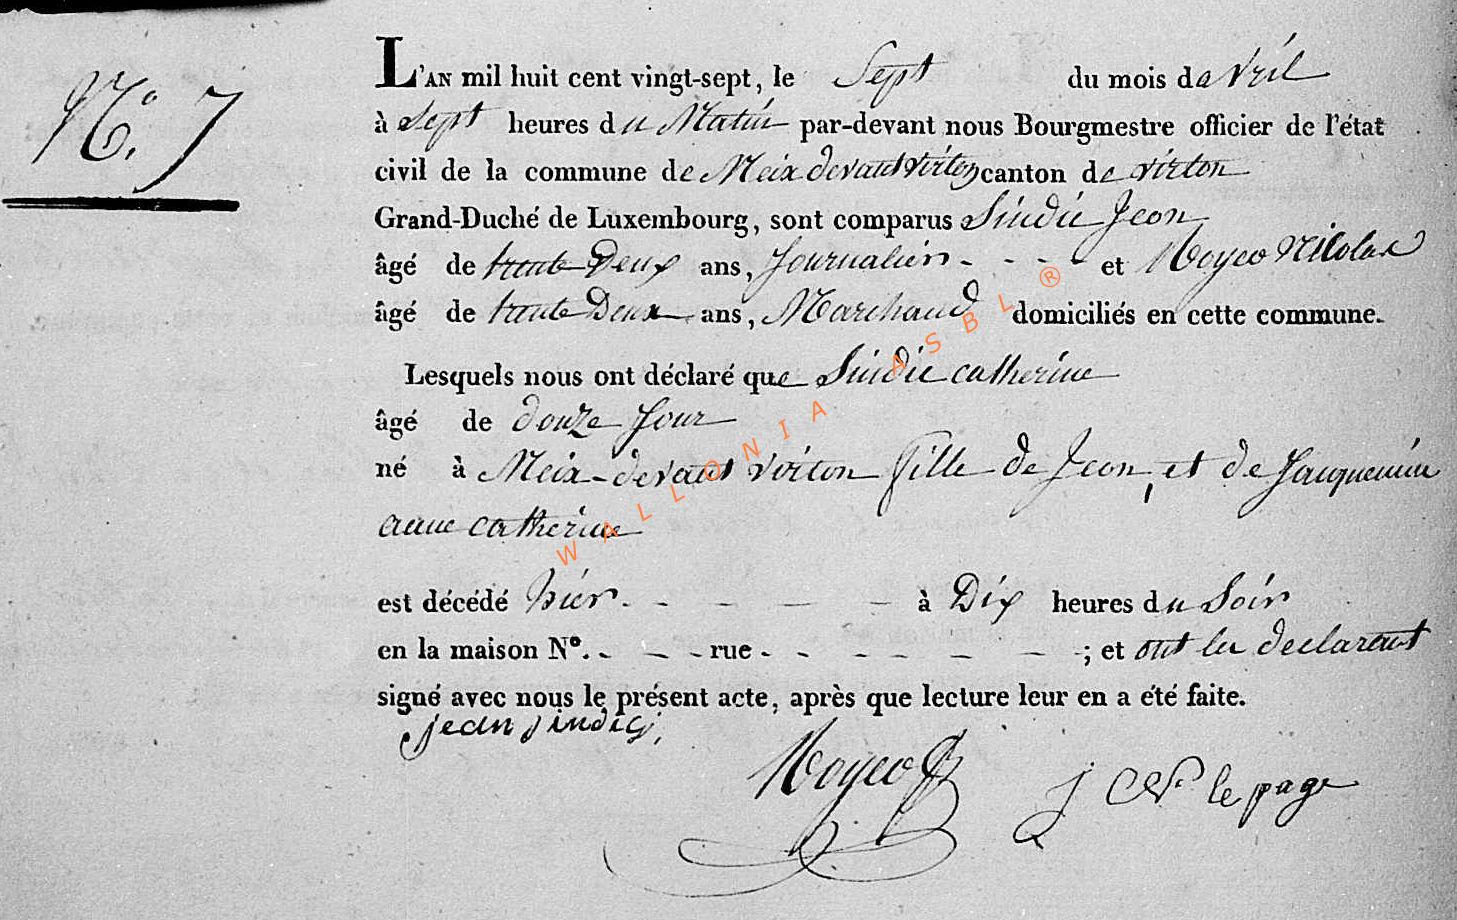 N.° 7
L'AN mil huit cent vingt-sept, le Sept du mois d'avril
à Sept heures du Matin par-devant nous Bourgmestre officier de l'état
civil de la commune de Meix devant virton canton de virton
Grand-Duché de Luxembourg, sont comparus Sindic Jean
âgé de trente Deux ans, Journalier - - - - et Noyeo Nicolas
âgé de trente Deux ans, Marchand domiciliés en cette commune.
Lesquels nous ont déclaré que Sindic catherine
âgé de douze Jour
né à Meix-devant virton fille de Jean, et de Jacquemin
anne catherine
est décédé hier - - - - - à Dix heures du Soir
en la maison N°. - - - rue - - - - - - - ; et ont les declarant
signé avec nous le présent acte, après que lecture leur en a été faite.
jean sindic,
Noyeo
J le page
WALLONIA ASBL ®